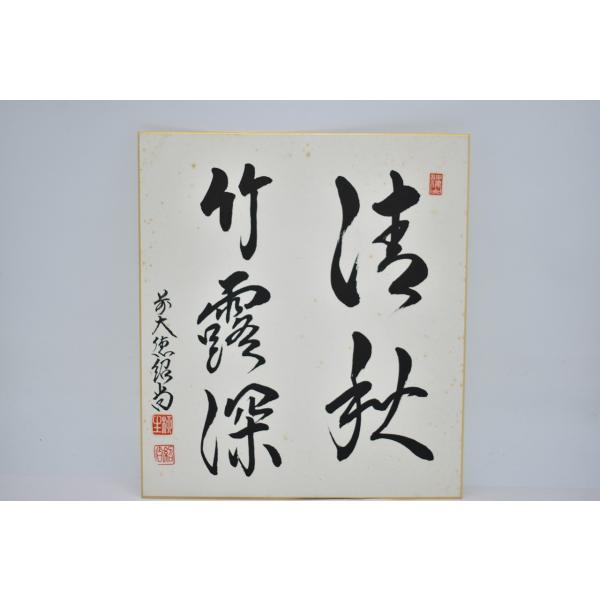 清秋
竹露深
前大徳紹尚